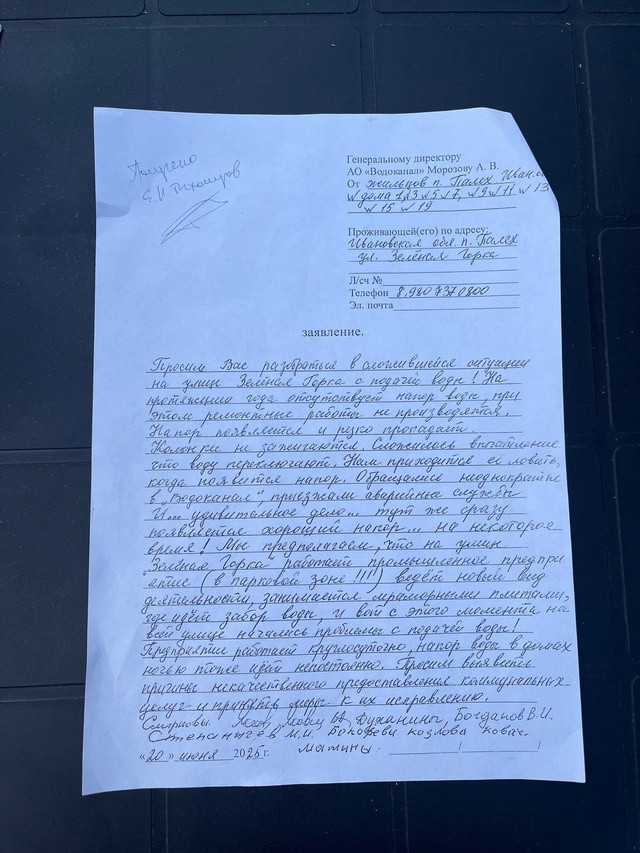 Получено
Е.И Тихомиров
Генеральному директору
АО «Водоканал» Морозову А. В.
От жильцов п. Палех Иван.об
д дома 1,3 5 7, 9 11 13
15 19
Проживающей(его) по адресу:
Ивановская обл. п. Палех
ул. Зелёная Горка
Л/сч №
Телефон 8,980 737 0800
Эл. почта
заявление.
Просим Вас разобраться в сложившейся ситуации
на улице Зелёная Горка с подачей воды! На
протяжении года отсутствует напор воды, при
этом ремонтные работы не производятся.
Напор появляется и резко пропадает.
Колонки не зажигаются. Сложилось впечатление
что воду переключают. Нам приходится её ловить,
когда появится напор. Обращались неоднократно
в „Водоканал" приезжали аварийные службы
И... удивительное дело... тут же сразу
появляется хороший напор... на некоторое
время! Мы предполагаем, что на улице
Зелёная Горка работает промышленное предпри
ятие (в парковой зоне !!!) ведёт новый вид
деятельности, занимается мраморными плитами,
где идёт забор воды, и вот с этого момента на
всей улице начались проблемы с подачей воды!
Предприятие работает круглосуточно, напор воды в домах
ночью тоже идёт непостоянно. Просим выявить
причины некачественного предоставления коммунальных
услуг и принять меры к их исправлению.
Смирновы. Духанины, Богданов В.И.
Степанычев М.И. Бокофеви козлова ковач.
«20» июня 2025 г. мамины.